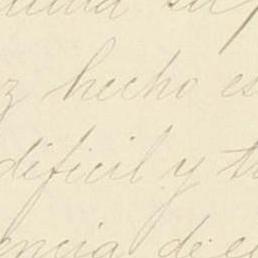 z hecho es
dificil y t
encia de e